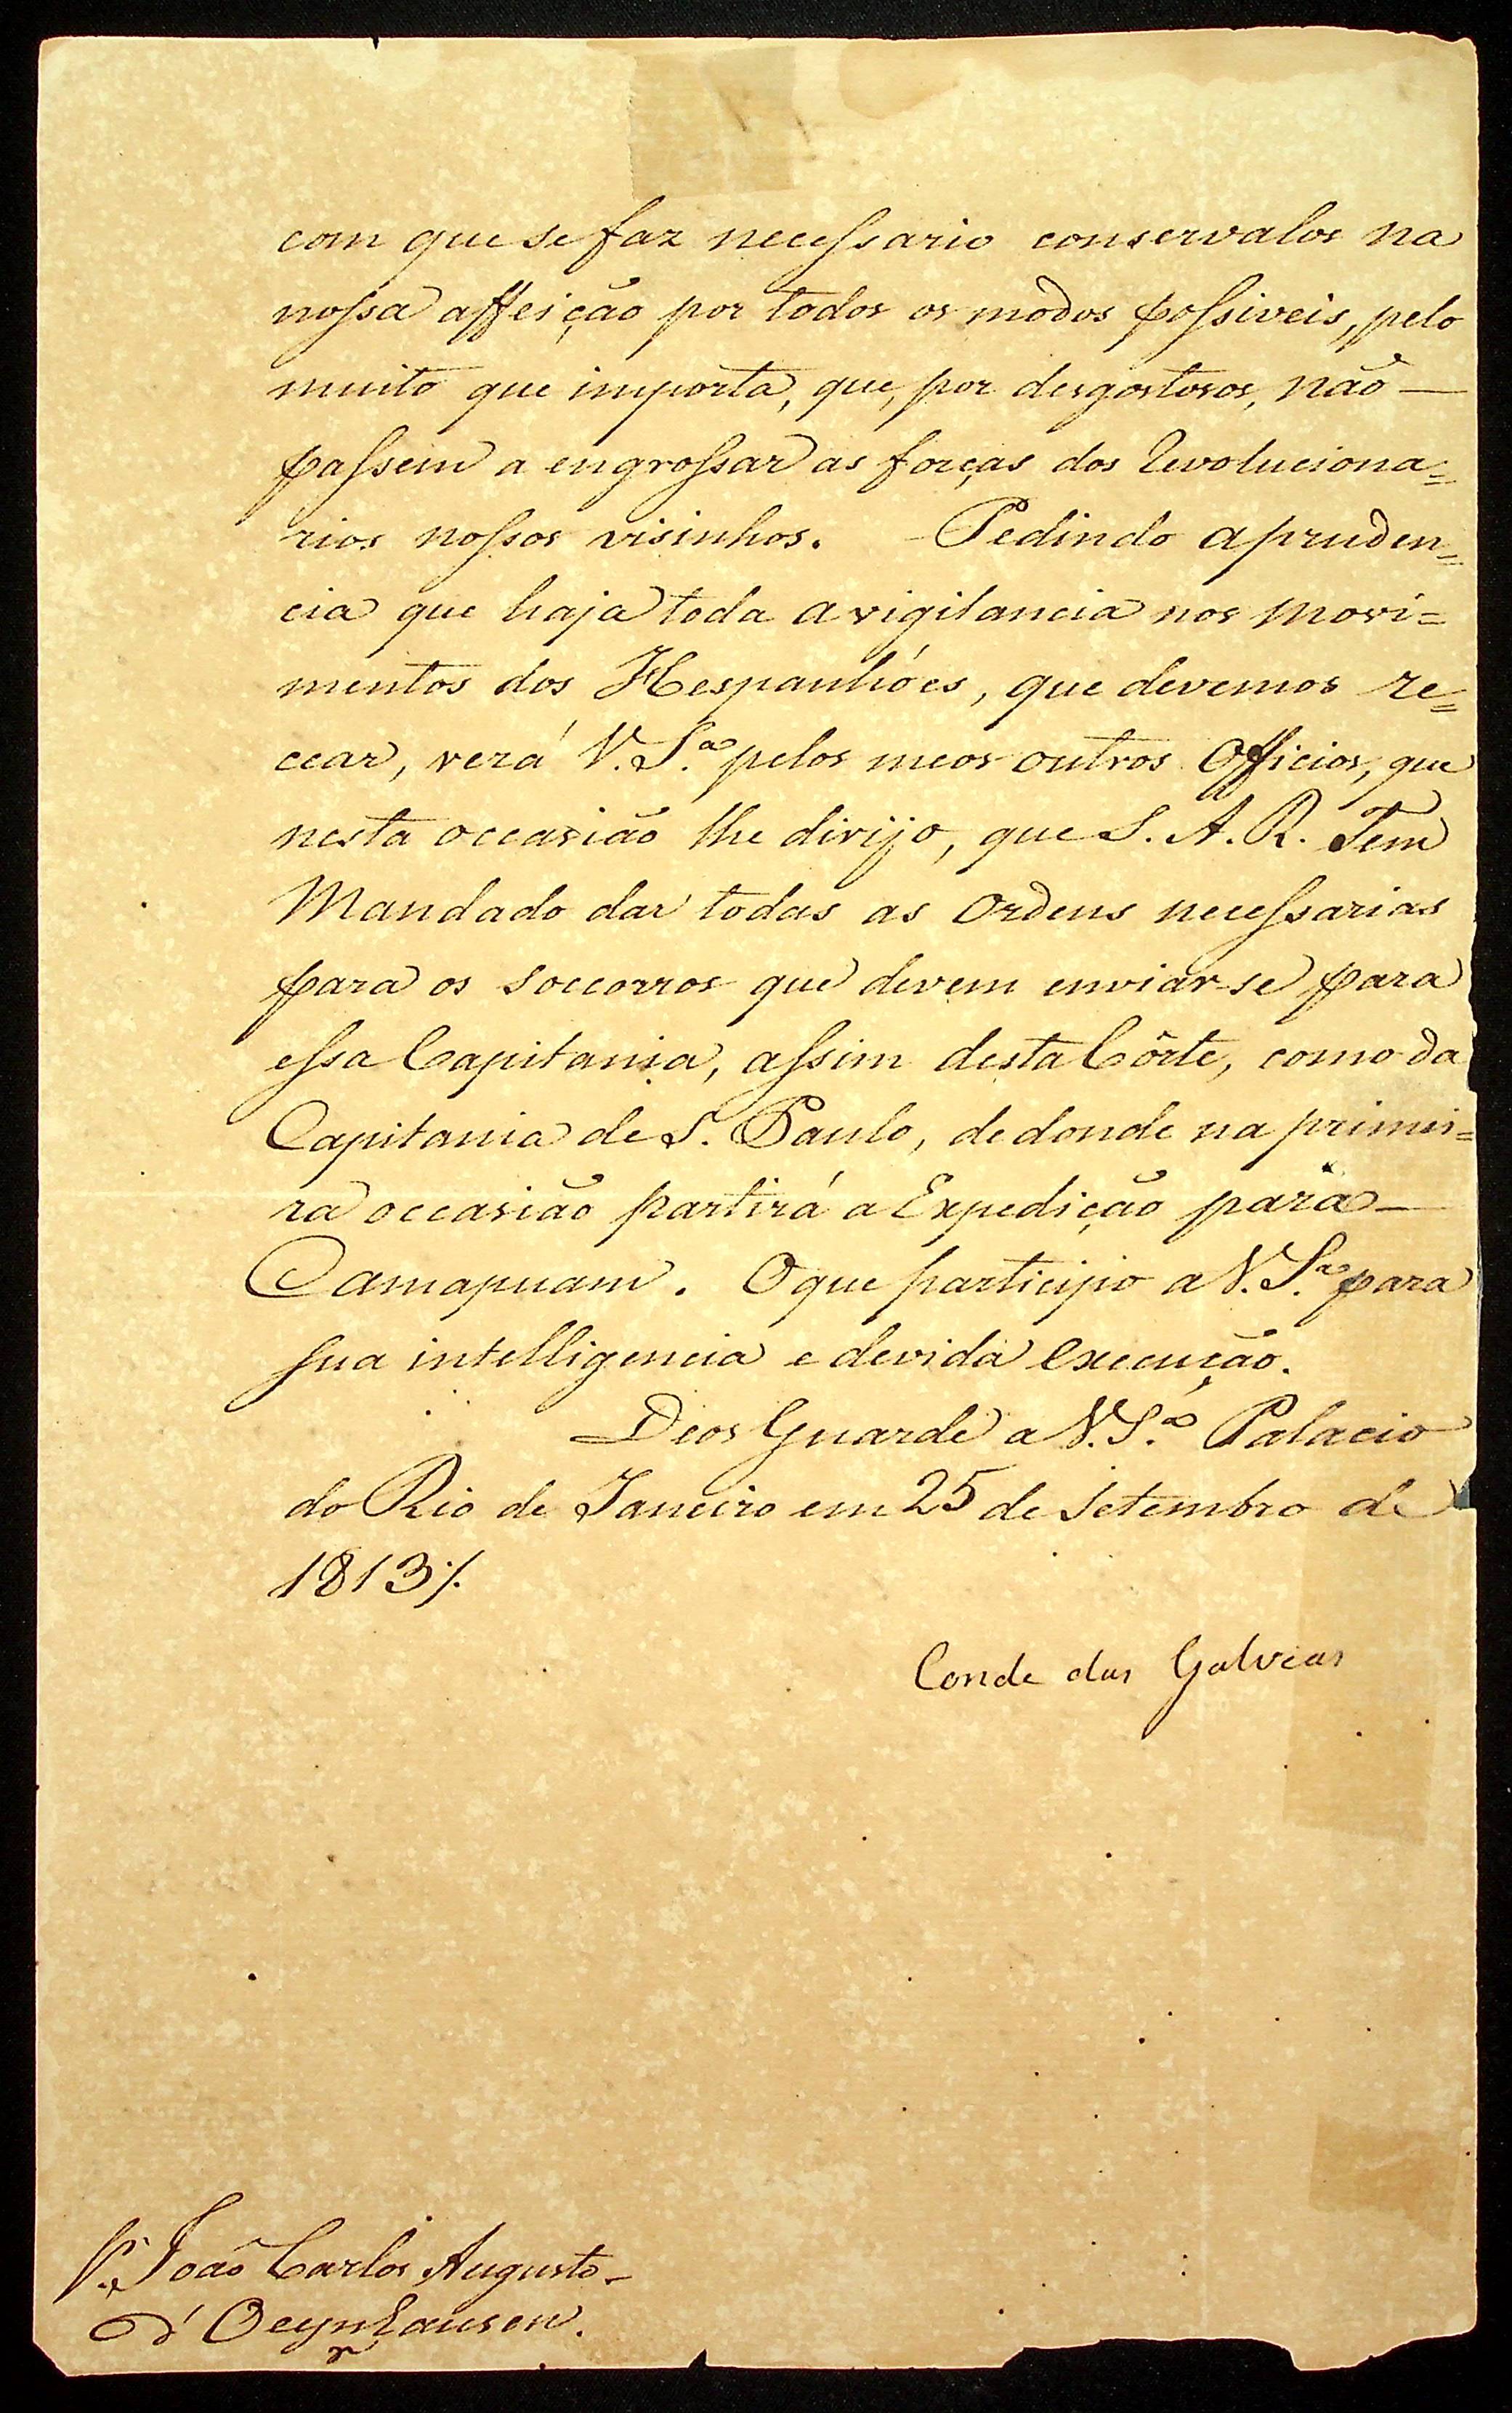 com que se faz necessario conservalos na
nossa affeição por todos os modos possiveis, pelo
muito que importa, que, por desgostosos, não —
passem a engrossar as forças dos Revoluciona=
rios nossos visinhos. — Pedindo a pruden=
cia que haja toda a vigilancia nos movi=
mentos dos Hespanhóes, que devemos re=
cear, verá V. S.ª pelos meos outros Officios, que
nesta occasião lhe dirijo, que S. A. R. Tem
Mandado dar todas as Ordens necessarias
para os soccorros que devem enviar-se para
essa Capitania, assim desta Côrte, como da
Capitania de S. Paulo, de donde na primei=
ra occasião partirá a Expedição para —
Camapuam. O que participo a V. S.ª para
sua intelligencia e devida execução.
Deos Guarde a V. S.ª Palacio
do Rio de Janeiro em 25 de Setembro de
1813 ·/.
Conde das Galveas
S.r João Carlos Augusto
d'Oeynhausen.